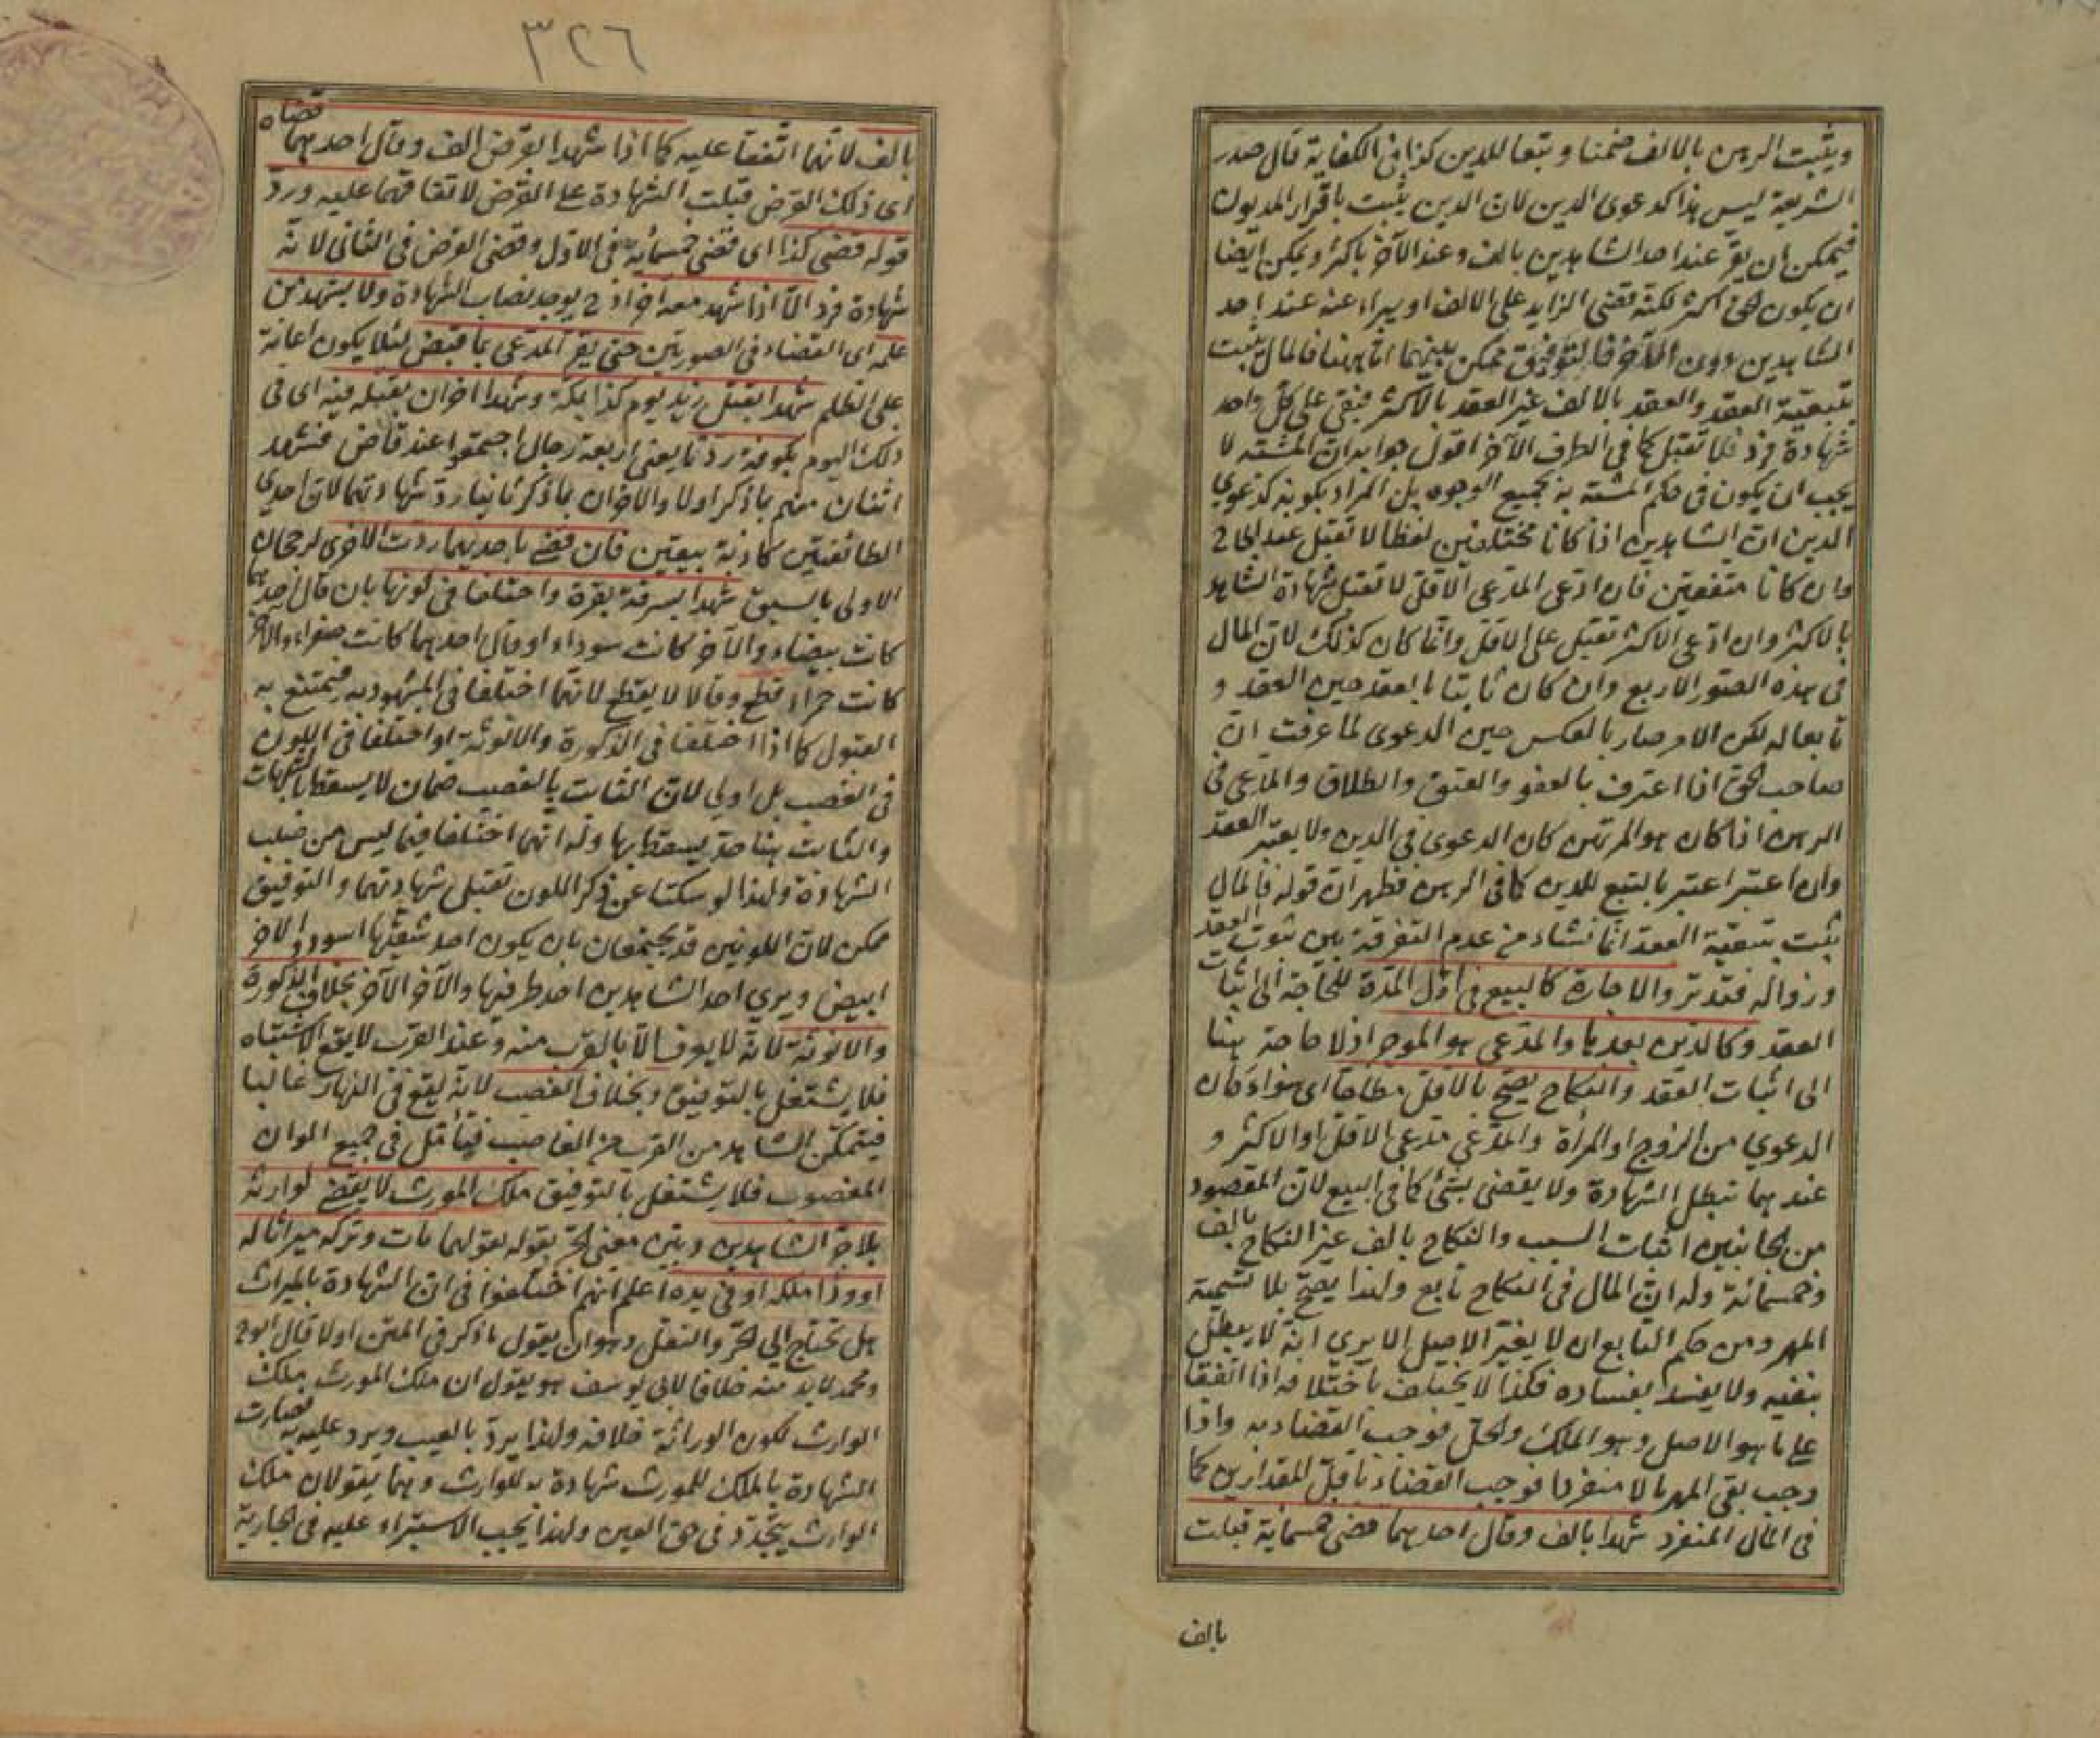 ويثبت الرهن بالالف ضمنا وتبعا للدين كذا فى الكفاية قال صدر
الشريعة ليس هذا كدعوى الدين لان الدين يثبت باقرار المديون
فيمكن ان يقر عند احد الشاهدين بالف وعند الآخر باكثر ويمكن ايضا
ان يكون الحق اكثر لكنه قضى الزايد على الالف او يبراء عنه عند احد
الشاهدين دون الآخر فالتوفيق ممكن بينهما اما ههنا فالمال يثبت
بتبعية العقد والعقد بالالف غير العقد بالاكثر فبقى على كل واحد
شهادة فرد فلا تقبل كما فى الطرف الآخر اقول جوابه ان المشبه لا
يجب ان يكون فى حكم المشبه به بجميع الوجوه بل المراد بكونه كدعوي
الدين ان الشاهدين اذا كانا مختلفين لفظا لا تقبل عند ابى ح
وان كانا متفقين فان ادعى المدعى الاقل لا تقبل شهادة الشاهد
بالاكثر وان ادعى الاكثر تقبل على الاقل وانما كان كذلك لان المال
فى هذه الصور الاربع وان كان ثابتا بالعقد حين العقد و
تابعا له لكن الامر صار بالعكس حين الدعوى لما عرفت ان
صاحب الحق اذا اعترف بالعفو والعتق والطلاق والمدعى فى
الرهن اذا كان هو المرتهن كان الدعوى فى الدين ولا يعتبر العقد
وان اعتبر اعتبر بالتبع للدين كما فى الرهن فظهر ان قوله فالمال
يثبت بتبعية العقد انما نشاء من عدم التفرقة بين ثبوت العقد
وزواله فتدبر والاجارة كالبيع فى اول المدة للحاجة الى اثبات
العقد وكالدين بعدها والمدعى هو الموجر اذ لا حاجة هنا
الى اثبات العقد والنكاح يصح بالاقل مطلقا اى سواء كان
الدعوي من الزوج او المرأة والمدعي مدعي الاقل او الاكثر و
عندهما تبطل الشهادة ولا يقضى بشئ كما فى البيع لان المقصود
من الجانبين اثبات السبب والنكاح بالف غير النكاح بالف
وخمسمائة وله ان المال فى النكاح تابع ولهذا يصح بلا تسمية
المهر ومن حكم التابع ان لا يغير الاصل الا يري انه لا يبطل
بنفيه ولا يفسد بفساده فكذا لا يختلف باختلافه اذا اتفقا
على ما هو الاصل وهو الملك والحل فوجب القضاء به واذا
وجب بقى المهر مالا منفردا فوجب القضاء باقل المقدارين كما
فى المال المنفرد شهدا بالف وقال احدهما قضى خمسمائة قبلت
بالف
٣٢٦
بالف لانهما اتفقا عليه كما اذا شهدا بقرض الف وقال احدهما قضاه
اى ذلك القرض قبلت الشهادة على القرض لاتفاقهما عليه ورد
قوله قضى كذا اى قضى خمسمائة فى الاول وقضى القرض فى الثانى لانه
شهادة فرد الا اذا شهد معه آخر اذ ح يوجد نصاب الشهادة ولا يشهد من
علمه اى القضاء فى الصورتين حتى يقر المدعى بما قبض لئلا يكون اعانة
على الظلم شهدا بقتل زيد يوم كذا بمكة وشهد اخران بقتله فيه اى فى
ذلك اليوم بكوفة ردتا يعنى اربعة رجال اجتمعوا عند قاض فشهد
اثنان منهم بما ذكر اولا والاخران بما ذكر ثانيا رد شهادتهما لان احدي
الطائفتين كاذبة بيقين فان قضى باحديهما ردت الاخرى لرجحان
الاولى بالسبق شهدا بسرقة بقرة واختلفا فى لونها بان قال احدهما
كانت بيضاء والآخر كانت سوداء او قال احدهما كانت صفراء والآخر
كانت حمراء قطع وقالا لا يقطع لانهما اختلفا فى المشهود به فيمتنع به
القبول كما اذا اختلفا فى الذكورة والانوثة او اختلفا فى اللون
فى الغصب بل اولى لان الثابت بالغصب ضمان لا يسقط بالشبهات
والثابت هنا حد يسقط بها وله انهما اختلفا فيما ليس من صلب
الشهادة ولهذا لو سكتا عن ذكر اللون تقبل شهادتهما والتوفيق
ممكن لان اللونين قد يجتمعان بان يكون احد شقيها اسود والآخر
ابيض ويري احد الشاهدين احد طرفيها والآخر الآخر بخلاف الذكورة
والانوثة لانه لا يعرف الا بالقرب منه وعند القرب لا يقع الاشتباه
فلا يشتغل بالتوفيق وبخلاف الغصب لانه يقع فى النهار غالبا
فيتمكن الشاهد من القرب من الغاصب فيتأمل فى جميع الوان
المغصوب فلا يشتغل بالتوفيق ملك المورث لا يقضى لوارثه
بلا جر الشاهدين وبين معنى الجر بقوله بقولهما مات وتركه ميراثا له
او وذا ملكه او فى يده اعلم انهم اختلفوا فى ان الشهادة بالميراث
هل تحتاج الى الجر والنقل وهو ان يقول ما ذكر فى المتن اولا قال ابو ح
ومحمد لا بد منه خلافا لابى يوسف هو يقول ان ملك المورث ملك
الوارث لكون الوراثة خلافة ولهذا يرد بالعيب ويرد عليه به فصارت
الشهادة بالملك للمورث شهادة به للوارث وهما يقولان ملك
الوارث يتجدد فى حق العين ولهذا يجب الاستبراء عليه فى الجارية